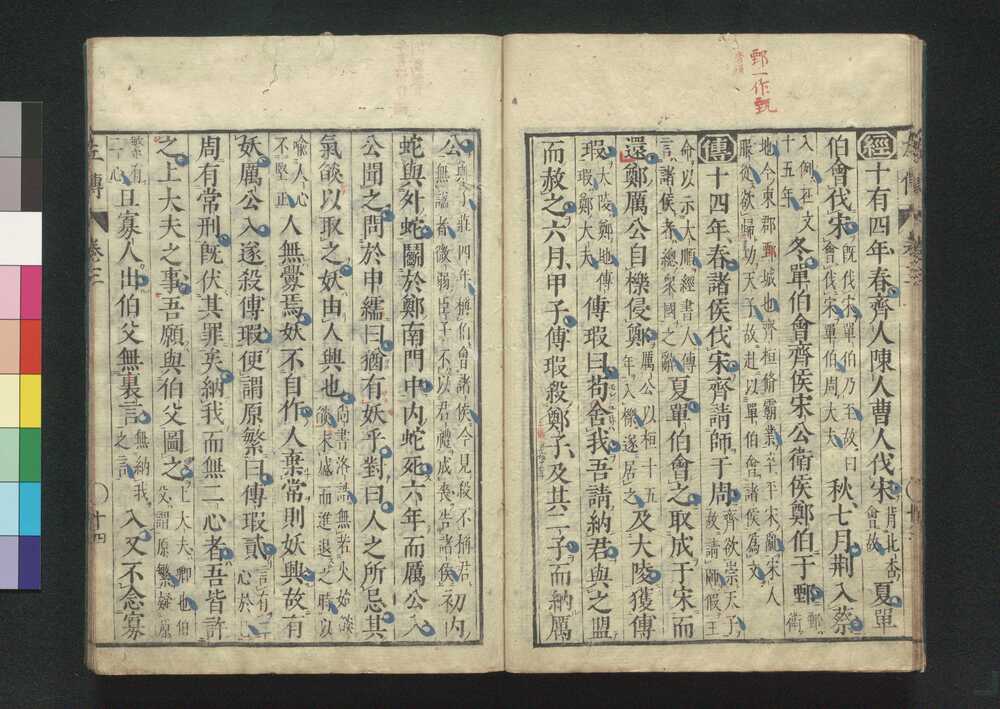 鄄一作甄
經十有四年春齊人陳人曹人伐宋背北杏會故夏單
伯會伐宋既伐宋單伯乃至故曰會伐宋單伯周大夫秋七月荆入蔡
入例在文十五年冬單伯會齊侯宋公衛侯鄭伯于鄄鄄衛
地今東郡鄄城也齊桓脩霸業卒平宋亂宋人服從欲歸功天子故赴以單伯會諸侯爲文
傳十四年春諸侯伐宋齊請師于周齊欲崇天子故請師假王
命以示大順經書人傳言諸侯者總衆國之辭夏單伯會之取成于宋而
還鄭厲公自櫟侵鄭厲公以桓十五年入櫟遂居之及大陵獲傅
瑕大陵鄭地傅瑕鄭大夫傅瑕曰苟舍我吾請納君與之盟
而赦之六月甲子傅瑕殺鄭子及其二子而納厲
公鄭子莊四年稱伯會諸侯今見殺不稱君無謚者微弱臣子不以君禮成喪告諸侯初內
蛇與外蛇鬭於鄭南門中內蛇死六年而厲公入
公聞之問於申繻曰猶有妖乎對曰人之所忌其
氣燄以取之妖由人興也尚書洛誥無若火始燄燄未盛而進退之時以
喻人心不堅正人無釁焉妖不自作人棄常則妖興故有
妖厲公入遂殺傅瑕使謂原繁曰傅瑕貳言有二心於
周有常刑既伏其罪矣納我而無二心者吾皆許
之上大夫之事吾願與伯父圖之上大夫卿也伯父謂原繁疑原
繁有二心且寡人出伯父無裏言無納我之言入又不念寡
左傳 卷三 十四